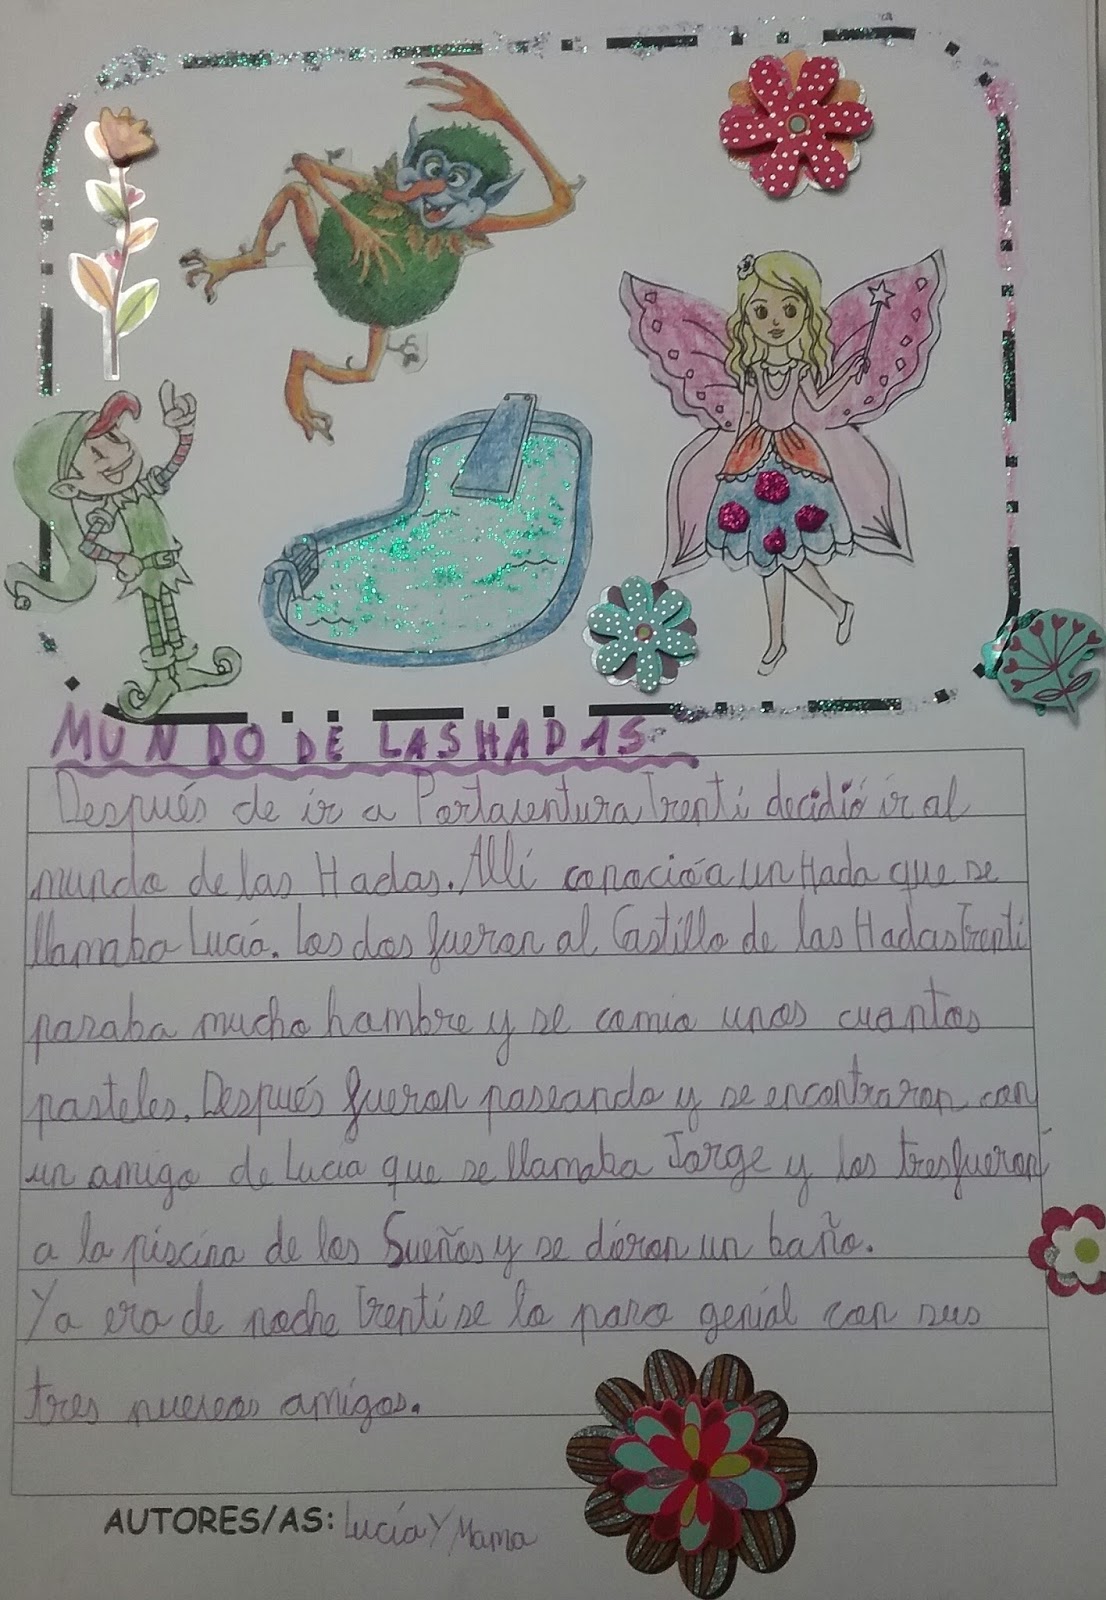 MUNDO DE LAS HADAS
Después de ir a Portaventura Trenti decidió ir al
mundo de las Hadas. Allí conoció a un Hada que se
llamaba Lucía. Los dos fueron al Castillo de las Hadas Trenti
paraba mucho hambre y se comio unos cuantos
pasteles. Después fueron paseando y se encontraron con
un amigo de Lucía que se llamaba Jorge y los tres fueron
a la piscina de los Sueños y se dieron un baño.
Ya era de noche Trenti se lo paro genial con sus
tres nuevos amigos.
AUTORES/AS: Lucía Y Mama